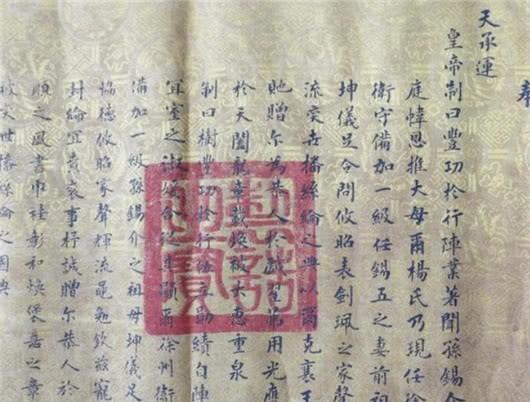 奉
天承運
皇帝制曰豐功於行陣業著聞孫錫
庭幃恩推大母爾楊氏乃現任徐
衛守備加一級任錫五之妻前祖
坤儀足令問攸昭表劍珮之家聲
流奕世播絲綸之典以爾克襄王
貤贈爾為恭人於戲用光應
於天闔龍章載煥被大惠重泉
制曰樹豐功於行陣立勛績自陣
宜室之淑媛合從其顯爾徐州衛
備加一級孫錫介之祖母坤儀足
協德攸昭家聲輝流黽勉欽茲寵
封綸宜襄事抒誠贈爾恭人於
順之風書巾彰和煥褒嘉之章
被奕世播絲綸之國典